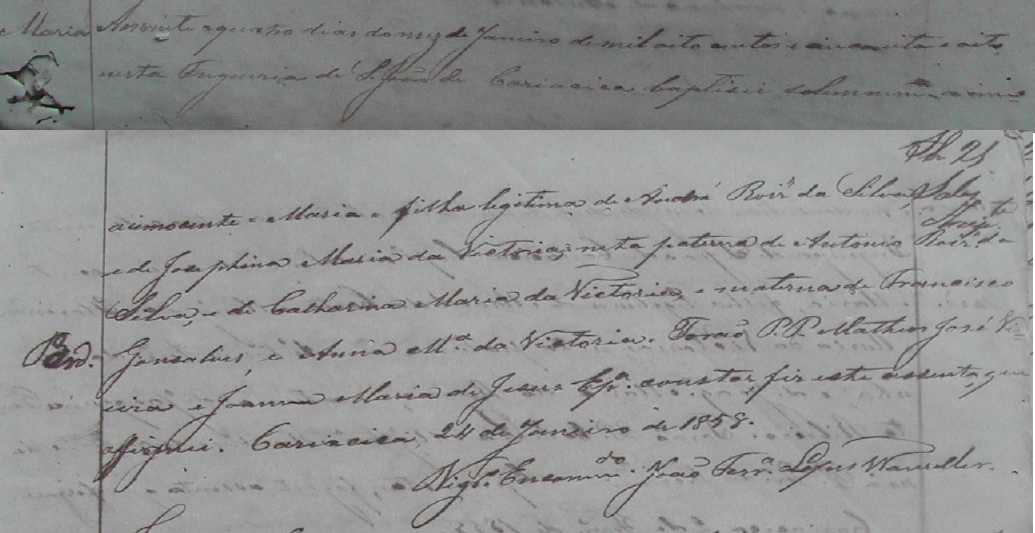 Maria Aos vinte e quatro dias do mez de Janeiro de mil oito centos e cincoenta e oito
nesta Freguesia de S. João de Cariacica baptisei solemnem.e a inno
a innocente Maria filha legitima de André Roiz da Silva,
e de Josephina Maria da Victoria; neta paterna de Antonio Roiz da
Silva, e de Catharina Maria da Victoria, e materna de Francisco
Gonsalves, e Anna M.a da Victoria. Forão P.P. Matheos José Vi-
eira e Joanna Maria de Jesus E p.a constar fiz este assento, que
assignei. Cariacica 24 de Janeiro de 1858.
Vig.o Encommdo. João Ferr.a Lopes Wanceller.